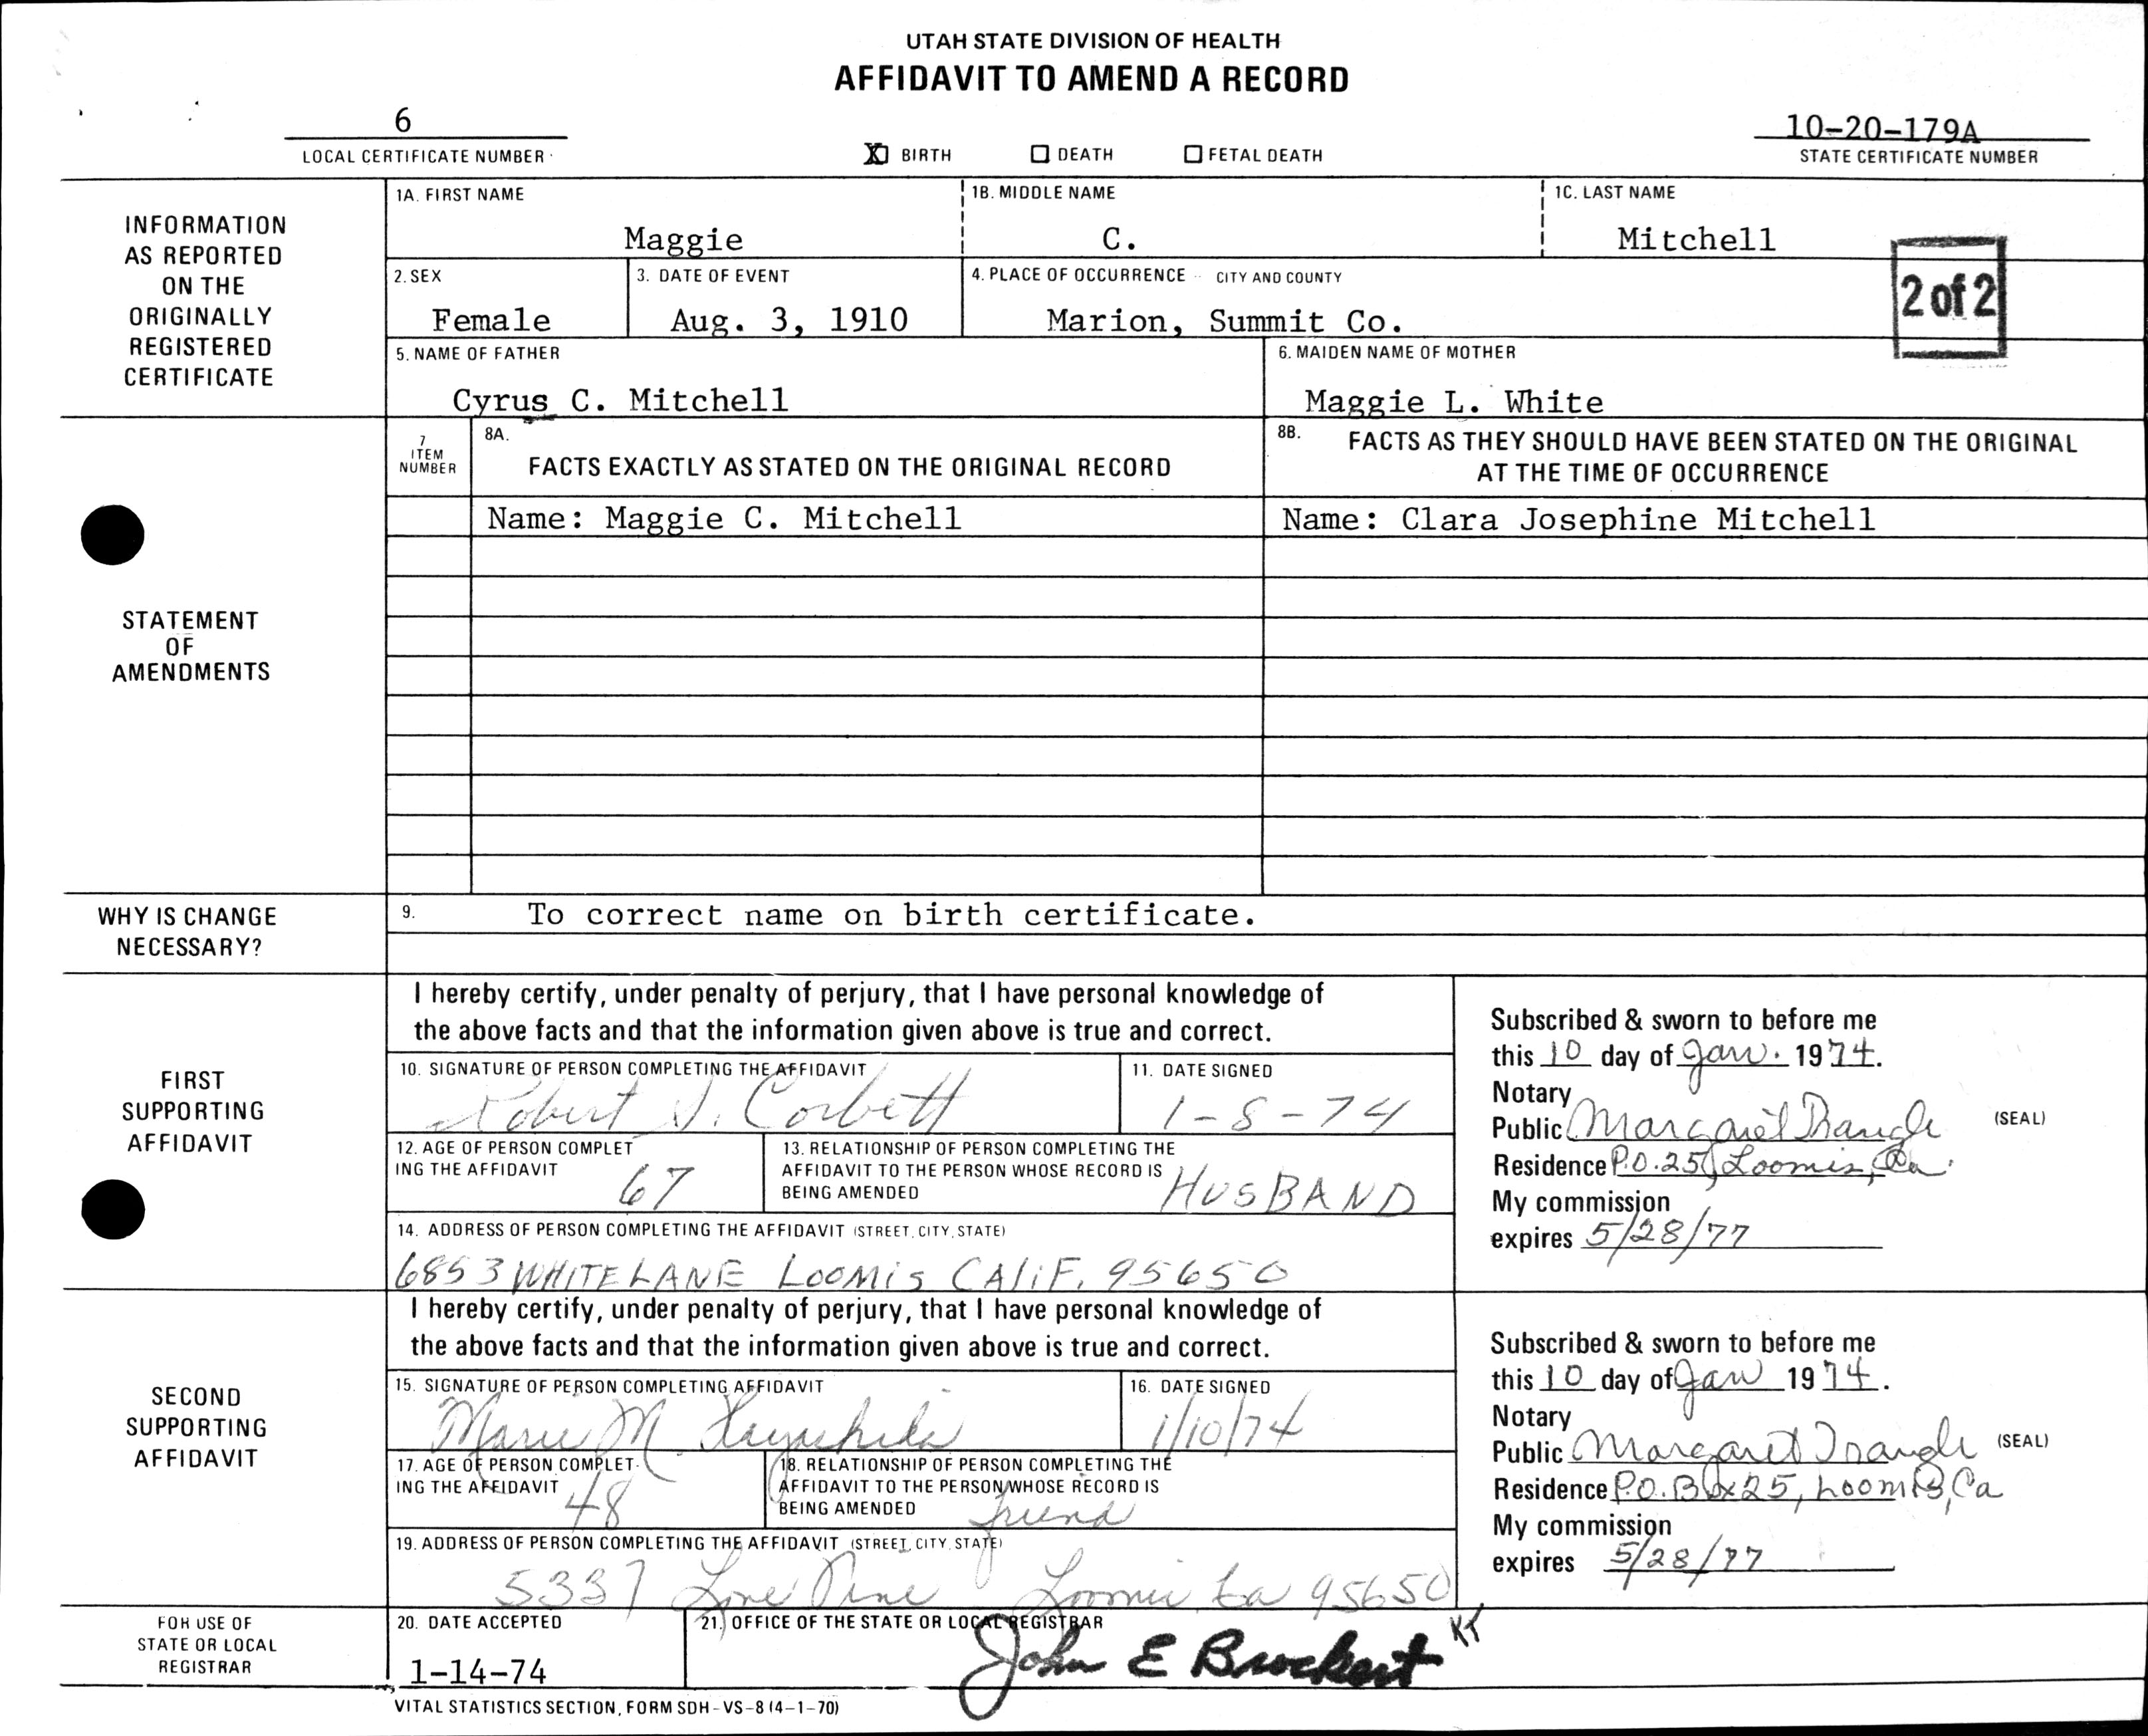 UTAH STATE DIVISION OF HEALTH
AFFIDAVIT TO AMEND A RECORD
6
LOCAL CERTIFICATE NUMBER
X BIRTH DEATH FETAL DEATH
10-20-179A
STATE CERTIFICATE NUMBER
INFORMATION
AS REPORTED
ON THE
ORIGINALLY
REGISTERED
CERTIFICATE
1A. FIRST NAME
Maggie
1B. MIDDLE NAME
C.
1C. LAST NAME
Mitchell
2. SEX
Female
3. DATE OF EVENT
Aug. 3, 1910
4. PLACE OF OCCURRENCE -- CITY AND COUNTY
Marion, Summit Co.
2 of 2
5. NAME OF FATHER
Cyrus C. Mitchell
6. MAIDEN NAME OF MOTHER
Maggie L. White
STATEMENT
OF
AMENDMENTS
7
ITEM
NUMBER
8A.
FACTS EXACTLY AS STATED ON THE ORIGINAL RECORD
8B.
FACTS AS THEY SHOULD HAVE BEEN STATED ON THE ORIGINAL
AT THE TIME OF OCCURRENCE
Name: Maggie C. Mitchell
Name: Clara Josephine Mitchell
WHY IS CHANGE
NECESSARY?
9. To correct name on birth certificate.
FIRST
SUPPORTING
AFFIDAVIT
I hereby certify, under penalty of perjury, that I have personal knowledge of
the above facts and that the information given above is true and correct.
10. SIGNATURE OF PERSON COMPLETING THE AFFIDAVIT
Robert J. Corbett
11. DATE SIGNED
1-8-74
12. AGE OF PERSON COMPLET
ING THE AFFIDAVIT
67
13. RELATIONSHIP OF PERSON COMPLETING THE
AFFIDAVIT TO THE PERSON WHOSE RECORD IS
BEING AMENDED
HUSBAND
14. ADDRESS OF PERSON COMPLETING THE AFFIDAVIT (STREET, CITY, STATE)
6853 WHITE LANE LOOMIS CALIF. 95650
Subscribed & sworn to before me
this 10 day of Jan. 1974.
Notary
Public Margaret (SEAL)
Residence P.O. 25, Loomis, Ca.
My commission
expires 5/28/77
SECOND
SUPPORTING
AFFIDAVIT
I hereby certify, under penalty of perjury, that I have personal knowledge of
the above facts and that the information given above is true and correct.
15. SIGNATURE OF PERSON COMPLETING AFFIDAVIT
Marie M. Hayashida
16. DATE SIGNED
1/10/74
17. AGE OF PERSON COMPLET-
ING THE AFFIDAVIT
48
18. RELATIONSHIP OF PERSON COMPLETING THE
AFFIDAVIT TO THE PERSON WHOSE RECORD IS
BEING AMENDED
friend
19. ADDRESS OF PERSON COMPLETING THE AFFIDAVIT (STREET, CITY, STATE)
5337 Lone Pine Loomis, Ca 95650
Subscribed & sworn to before me
this 10 day of Jan 1974.
Notary
Public Margaret (SEAL)
Residence P.O. Box 25, Loomis, Ca
My commission
expires 5/28/77
FOR USE OF
STATE OR LOCAL
REGISTRAR
20. DATE ACCEPTED
1-14-74
21. OFFICE OF THE STATE OR LOCAL REGISTRAR
John E Brockert KT
VITAL STATISTICS SECTION, FORM SDH-VS-8 (4-1-70)